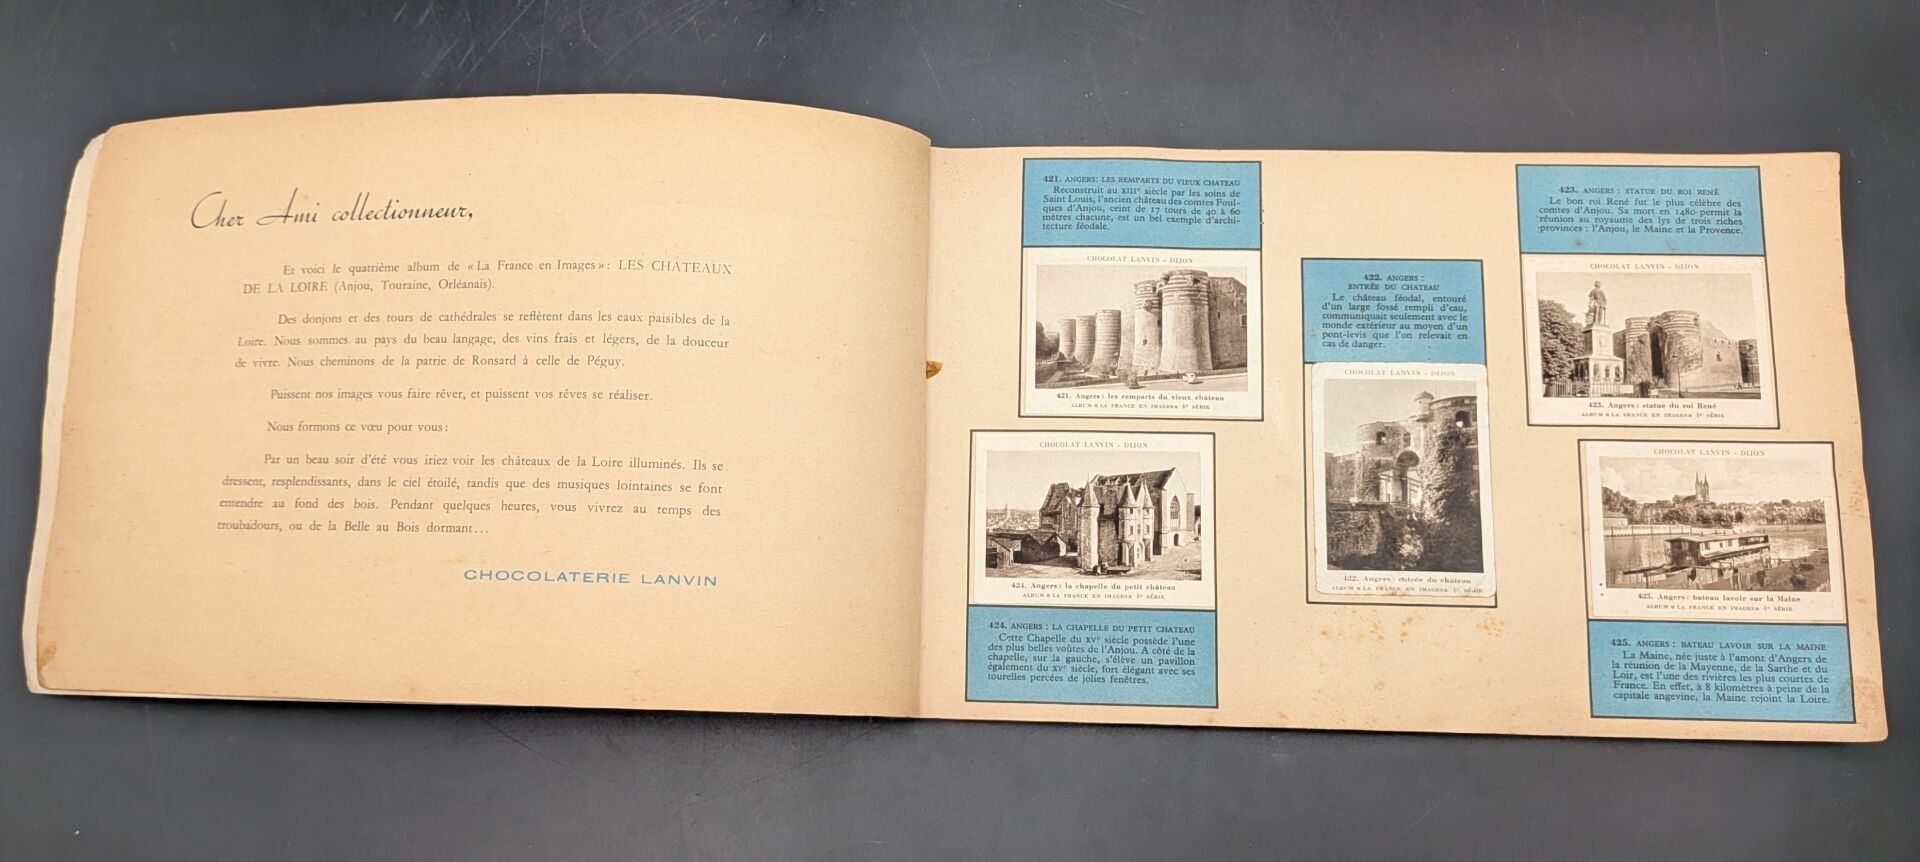 Cher Ami collectionneur,
Et voici le quatrième album de « La France en Images » : LES CHATEAUX
DE LA LOIRE (Anjou, Touraine, Orléanais).
Des donjons et des tours de cathédrales se reflètent dans les eaux paisibles de la
Loire. Nous sommes au pays du beau langage, des vins frais et légers, de la douceur
de vivre. Nous cheminons de la patrie de Ronsard à celle de Péguy.
Puissent nos images vous faire rêver, et puissent vos rêves se réaliser.
Nous formons ce vœu pour vous :
Par un beau soir d'été vous iriez voir les châteaux de la Loire illuminés. Ils se
dressent, resplendissants, dans le ciel étoilé, tandis que des musiques lointaines se font
entendre au fond des bois. Pendant quelques heures, vous vivrez au temps des
troubadours, ou de la Belle au Bois dormant...
CHOCOLATERIE LANVIN
421. ANGERS : LES REMPARTS DU VIEUX CHATEAU
Reconstruit au XIIIe siècle par les soins de
Saint Louis, l'ancien château des comtes Foul-
ques d'Anjou, ceint de 17 tours de 40 à 60
mètres chacune, est un bel exemple d'archi-
tecture féodale.
CHOCOLAT LANVIN - DIJON
421. Angers : les remparts du vieux château
ALBUM « LA FRANCE EN IMAGES » 4e SÉRIE
CHOCOLAT LANVIN - DIJON
424. Angers : la chapelle du petit château
ALBUM « LA FRANCE EN IMAGES » 4e SÉRIE
424. ANGERS : LA CHAPELLE DU PETIT CHATEAU
Cette Chapelle du XVe siècle possède l'une
des plus belles voûtes de l'Anjou. A côté de la
chapelle, sur la gauche, s'élève un pavillon
également du XVe siècle, fort élégant avec ses
tourelles percées de jolies fenêtres.
422. ANGERS :
ENTRÉE DU CHATEAU
Le château féodal, entouré
d'un large fossé rempli d'eau,
communiquait seulement avec le
monde extérieur au moyen d'un
pont-levis que l'on relevait en
cas de danger.
CHOCOLAT LANVIN - DIJON
422. Angers : entrée du château
ALBUM « LA FRANCE EN IMAGES » 4e SÉRIE
423. ANGERS : STATUE DU ROI RENÉ
Le bon roi René fut le plus célèbre des
comtes d'Anjou. Sa mort en 1480 permit la
réunion au royaume des lys de trois riches
provinces : l'Anjou, le Maine et la Provence.
CHOCOLAT LANVIN - DIJON
423. Angers : statue du roi René
ALBUM « LA FRANCE EN IMAGES » 4e SÉRIE
CHOCOLAT LANVIN - DIJON
425. Angers : bateau lavoir sur la Maine
ALBUM « LA FRANCE EN IMAGES » 4e SÉRIE
425. ANGERS : BATEAU LAVOIR SUR LA MAINE
La Maine, née juste à l'amont d'Angers de
la réunion de la Mayenne, de la Sarthe et du
Loir, est l'une des rivières les plus courtes de
France. En effet, à 8 kilomètres à peine de la
capitale angevine, la Maine rejoint la Loire.